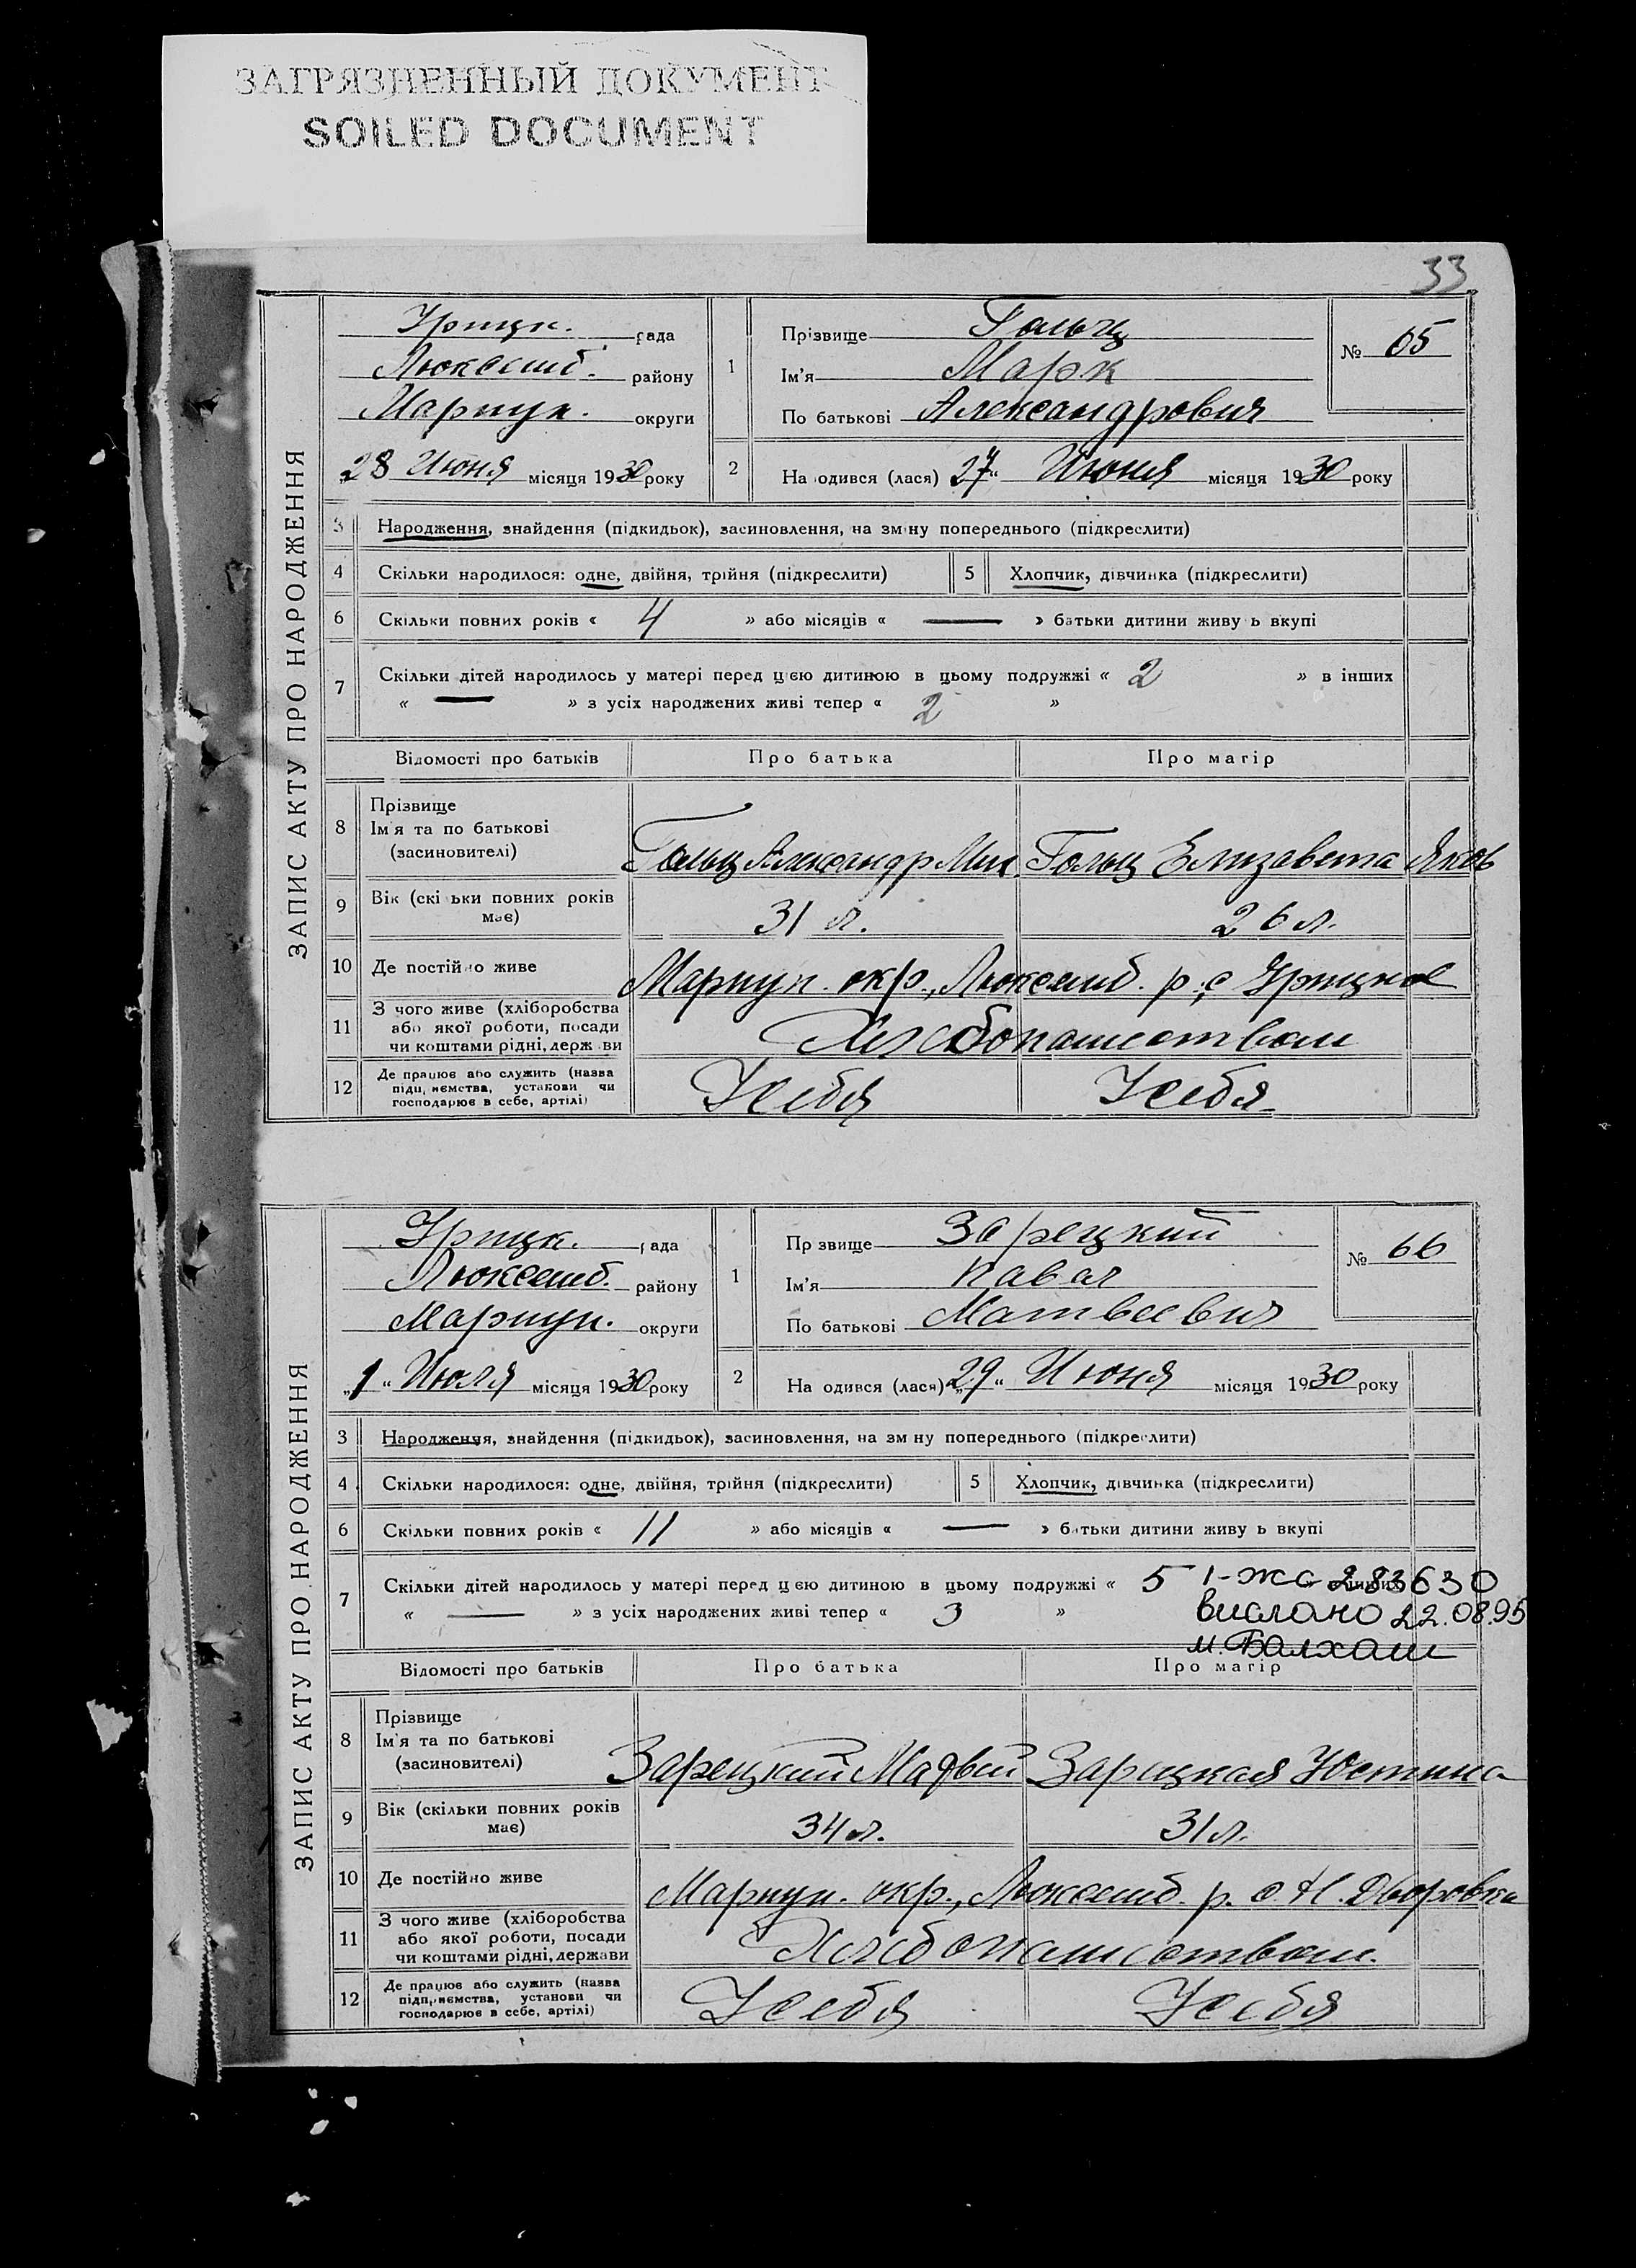 ЗАГРЯЗНЕННЫЙ ДОКУМЕНТ
SOILED DOCUMENT
33
ЗАПИС АКТУ ПРО НАРОДЖЕННЯ
Урицк. рада
Люксемб. району
Мариуп. округи
28 Июня місяця 1930 року
1
Прізвище Гольц
Ім'я Марк
По батькові Александрович
№ 65
2
На одився (лася) 27 " Июня місяця 1930 року
3 Народження, знайдення (підкидьок), засиновлення, на зм ну попереднього (підкреслити)
4 Скільки народилося: одне, двійня, трійня (підкреслити) 5 Хлопчик, дівчинка (підкреслити)
6 Скільки повних років « 4 » або місяців « — » батьки дитини живу ь вкупі
7 Скільки дітей народилось у матері перед цією дитиною в цьому подружжі « 2 » в інших
« — » з усіх народжених живі тепер « 2 »
Відомості про батьків Про батька Про матір
8 Прізвище
Ім'я та по батькові
(засиновителі)
Гольц Александр Мих. Гольц Елизавета Яков
9 Вік (скі ьки повних років
має)
31 л. 26 л.
10 Де постійно живе Мариуп. окр., Люксемб. р. с Урицкое
11 З чого живе (хліборобства
або якої роботи, посади
чи коштами рідні, держ ви
Хлебопашеством
12 Де працює або служить (назва
підп, иємства, установи чи
господарює в себе, артілі)
У себя У себя
ЗАПИС АКТУ ПРО НАРОДЖЕННЯ
Урицк. рада
Люксемб. району
Мариуп. округи
„1" Июля місяця 1930 року
1
Пр звище Зарецкий
Ім'я Павел
По батькові Матвеевич
№ 66
2
На одився (лася) „29" Июня місяця 1930 року
3 Народження, знайдення (підкидьок), засиновлення, на зм ну попереднього (підкреслити)
4 Скільки народилося: одне, двійня, трійня (підкреслити) 5 Хлопчик, дівчинка (підкреслити)
6 Скільки повних років « 11 » або місяців « — » батьки дитини живу ь вкупі
7 Скільки дітей народилось у матері перед цією дитиною в цьому подружжі « 5 I-жс 283630
« — » з усіх народжених живі тепер « 3 » вислано 22.08.95
м. Балхаш
Відомості про батьків Про батька Про матір
8 Прізвище
Ім'я та по батькові
(засиновителі)
Зарецкий Матвей Зарицкая Юстина
9 Вік (скільки повних років
має)
34 л. 31 л.
10 Де постійно живе Мариуп. окр., Люксемб. р. с. Н. Дворовка
11 З чого живе (хліборобства
або якої роботи, посади
чи коштами рідні, держави
Хлебопашеством.
12 Де працює або служить (назва
підприємства, установи чи
господарює в себе, артілі)
У себя У себя